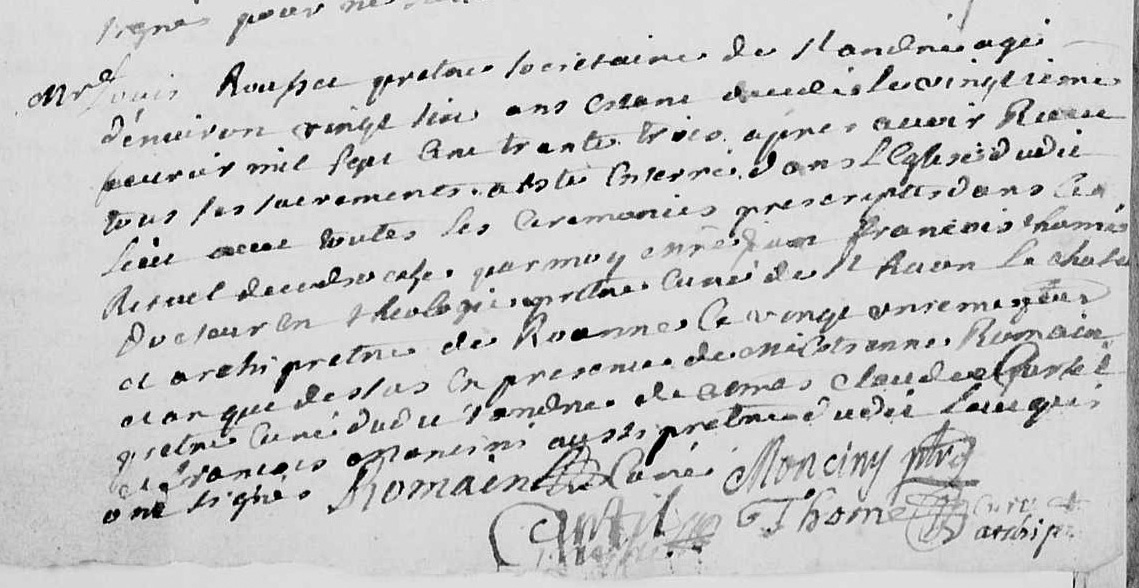 signés pour
Mre Louis Rousset pretre societaire de St andré agé
d'environ vingt six ans estant decedé le vingtieme
fevrier mil sept cent trente trois, apres avoir Receu
tous les sacrements a esté enterré dans l'Eglise dudit
lieu avec toutes les ceremonies prescriptes dans le
Rituel de ce diocese, par moy françois thomé
Docteur en theologie pretre curé de St haon le chatel
et archipretre de Roanne le vingt unieme jour
et an que dessus en presence de Mre Etienne Romain
pretre curé dudit St andré de mes claude Curtil
et françois Moncini aussi pretre dudit lieu qui
ont signés Romain Curé Monciny ptre
Curtil Thomé curé et
archipr